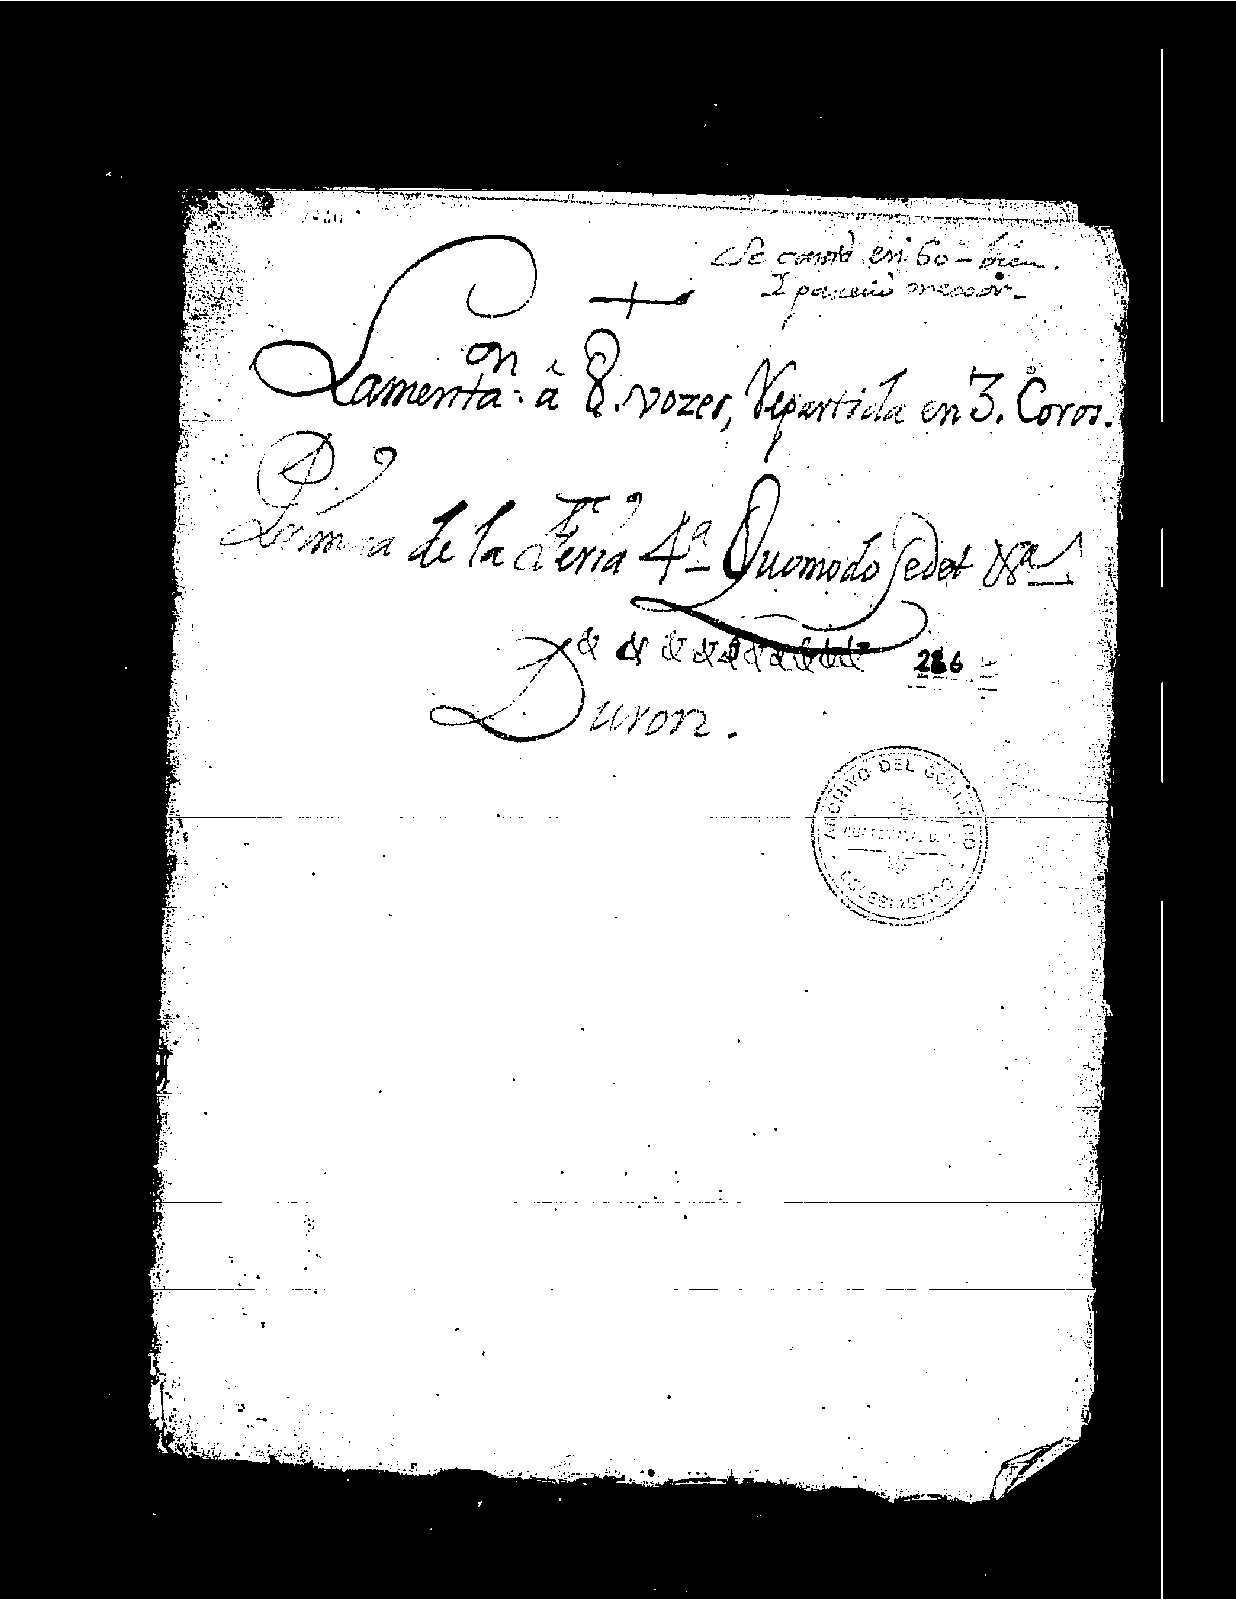 Se cantò en 60 - bien.
I pareciò mexor -
Lamenta.on â 8. vozes, Repartida en 3. Coros.
Primera de la Feria 4ª Quomodo sedet &a
& & & & & & & & & &
286
Duron.
ARCHIVO DEL
ECLESIASTICO